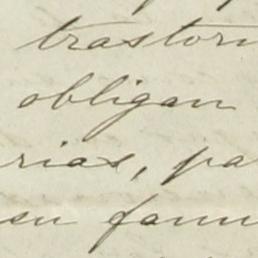 trastorn
obligan
rias, pa
su fam